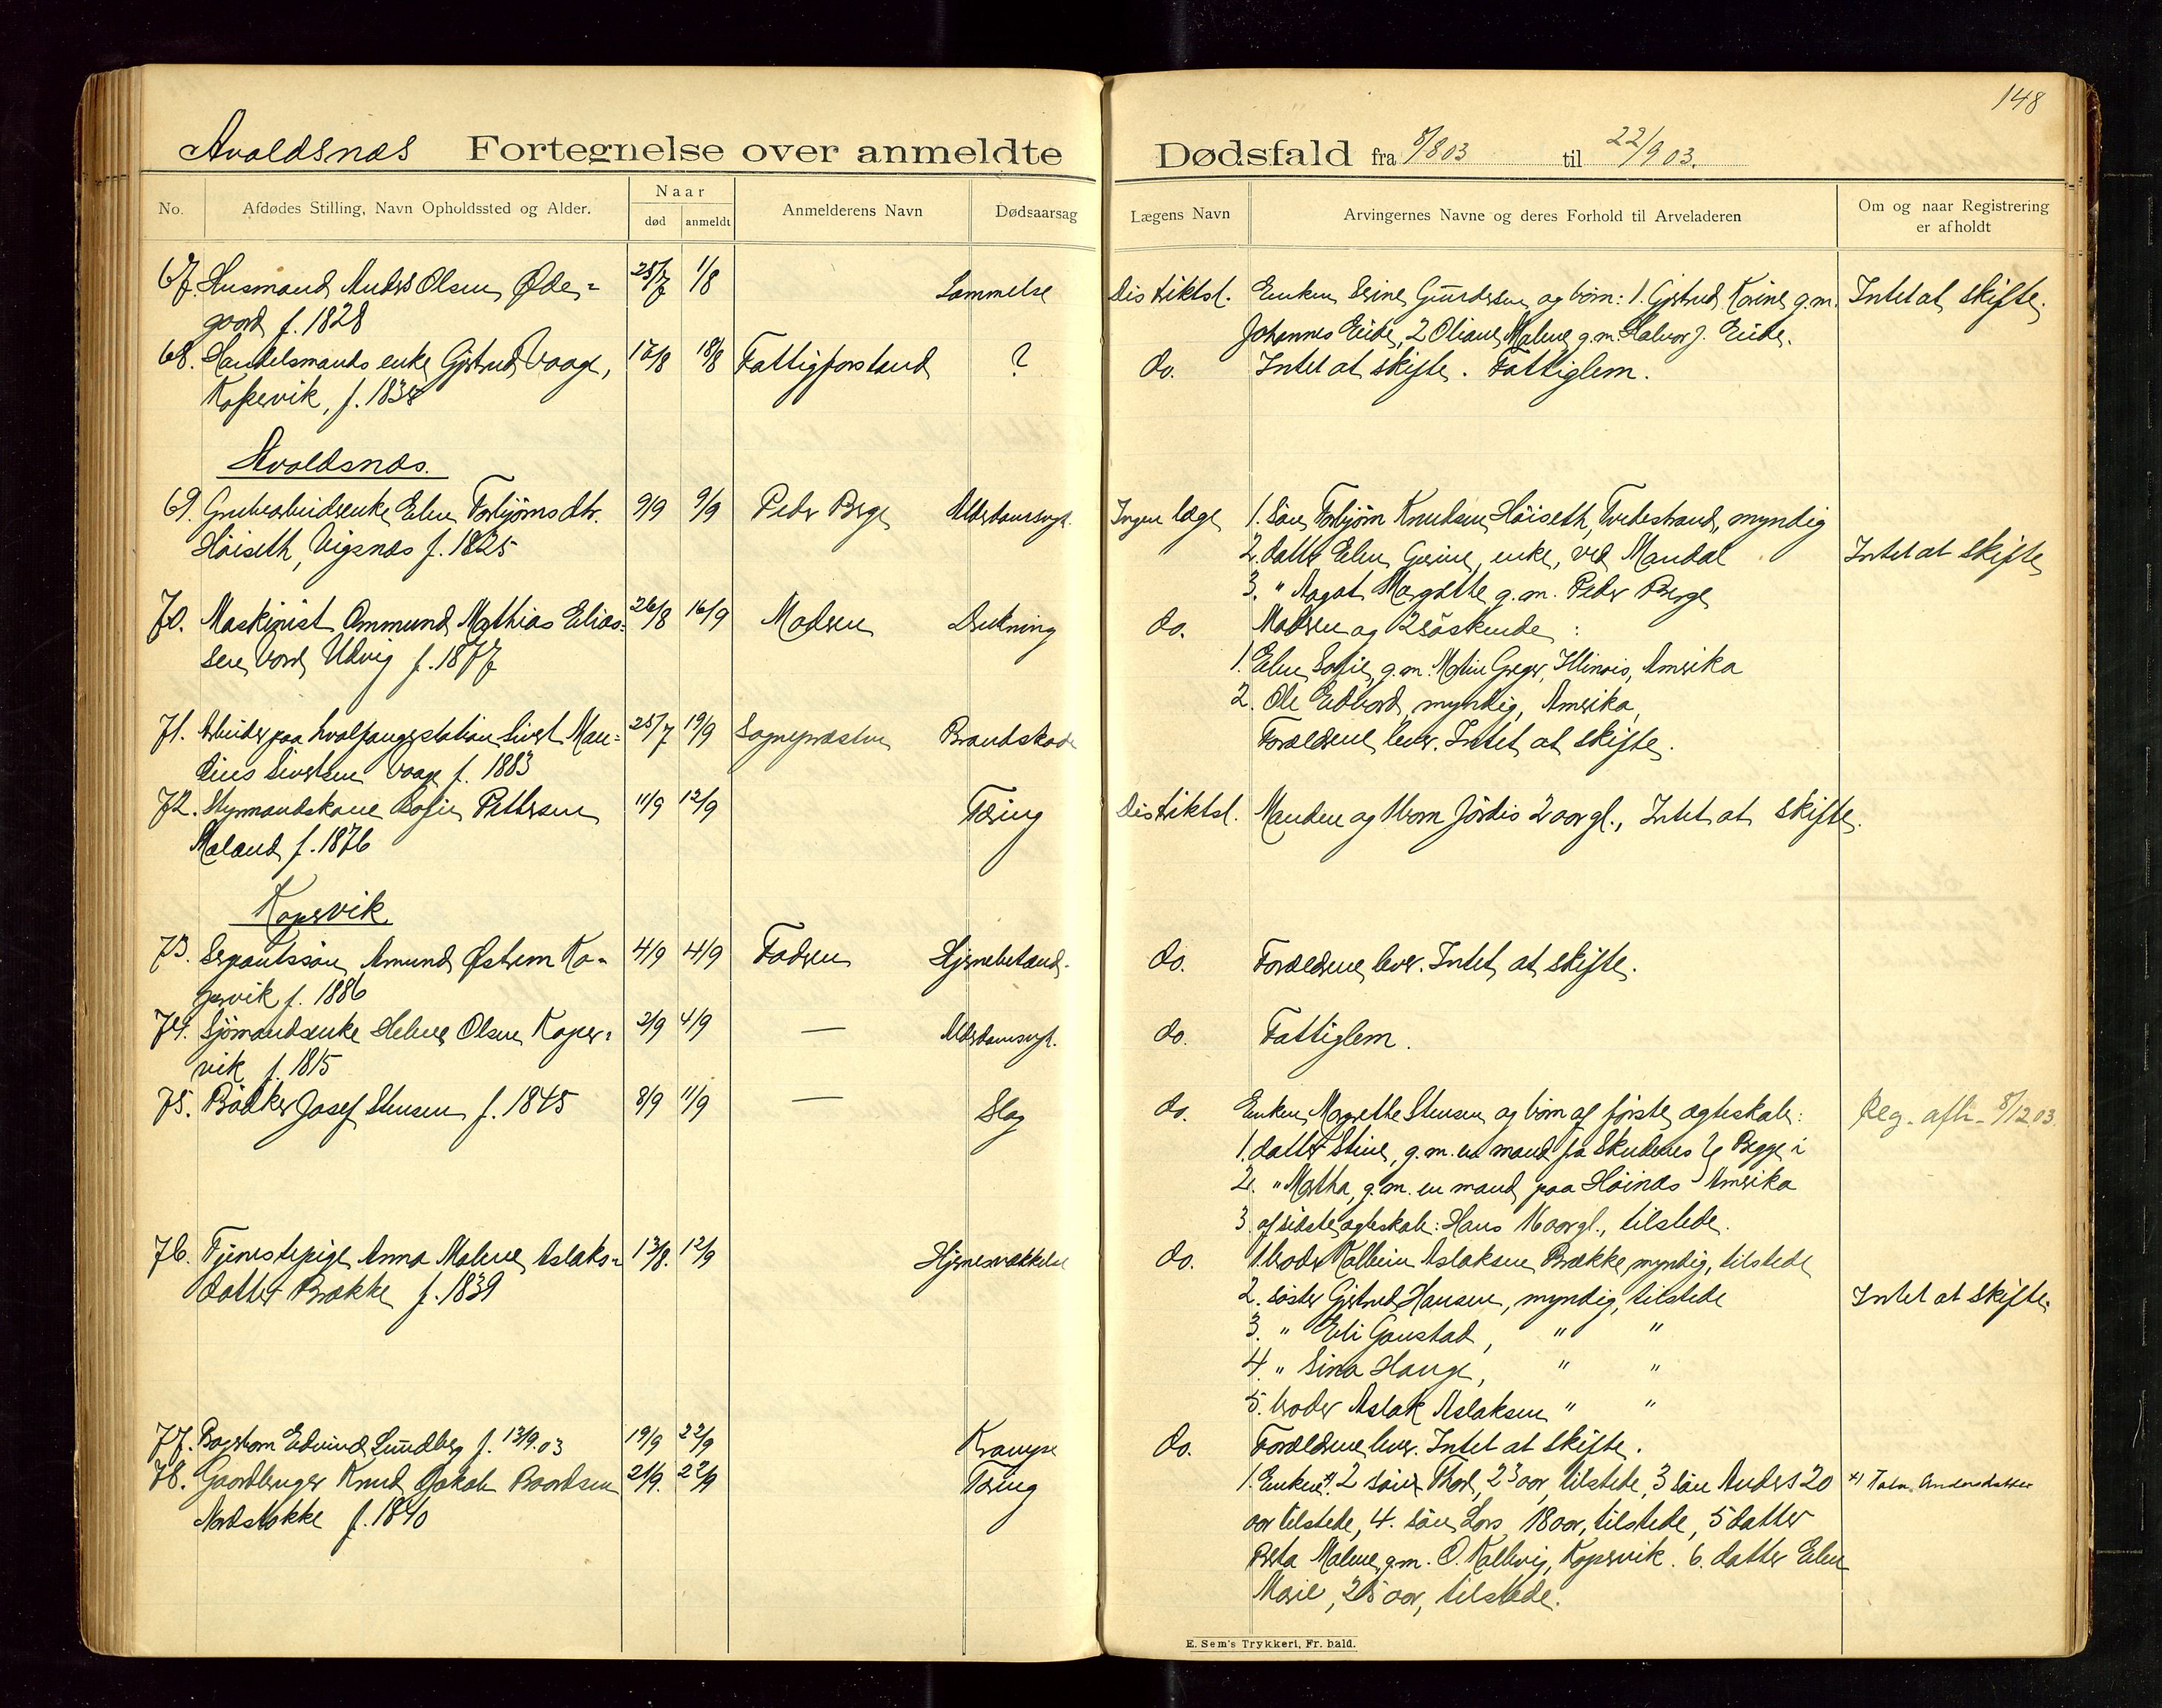 148
Avaldsnæs Fortegnelse over anmeldte Dødsfald fra 8/8 03 til 22/9 03.
No. Afdødes Stilling, Navn Opholdssted og Alder. Naar død anmeldt Anmelderens Navn Dødsaarsag Lægens Navn Arvingernes Navne og deres Forhold til Arveladeren Om og naar Registrering er afholdt
67. Husmand Anders Olsen Øde= 25/7 1/8 Lammelse Distriktsl. Enken Serine Guurdsen og børn: 1. Gjertrud Karine g.m. Intet at skifte.
gaard f. 1828 Johannes Eide, 2 Oliane Malene g.m. Halvor J. Eide.
68. Handelsmands enke Gjertrud Vaage, 17/8 18/8 Fattigforstand ? do. Intet at skifte. Fattiglem.
Kopervik, f. 1838
Avaldsnæs.
69. Grubearbeiderenke Elen Torbjørnsdtr. 9/9 9/9 Peder Berge Alderdomssvgh. Ingen læge 1. Søn Torbjørn Knudsen Høiseth, Tvedestrand, myndig
Høiseth, Vigsnæs f. 1825 2. datter Elen Gurine, enke, ved Mandal Intet at skifte
3. " Aagot Margrethe g.m. Peder Berge
70. Maskinist Ommund Mathias Elias= 26/8 16/9 Moderen Drukning do. Moderen og 2 søskende:
sen Vorre Udvig f. 1877 1. Elen Sofie, g.m. Martin Greger, Illinois, Amerika
2. Ole Edvard, myndig, Amerika,
71. Arbeider paa hvalfangerstation Sivert Man= 25/7 19/9 Sognepræsten Brandskade Forældrene lever. Intet at skifte.
dius Sivertsen Vaage f. 1883
72. Styrmandskone Sofie Pettersen 11/9 12/9 Tæring Distriktsl. Manden og 1 barn Jørdis 2 aar gl., Intet at skifte.
Mæland f. 1876
Kopervik
73. Sergantssøn Amund Østrem Ko= 4/9 4/9 Faderen Hjernebetænd. do. Forældrene lever. Intet at skifte.
pervik f. 1886
74. Sjømandsenke Helene Olsen Koper= 2/9 4/9 — Alderdomssvgh. do. Fattiglem.
vik f. 1815
75. Bødker Josef Stensen f. 1845 8/9 11/9 — Slag do. Enken Margrethe Stensen og børn af første ægteskab: Reg. afh. 8/12 03.
1. datter Stine, g.m. en mand fra Skudenes } Begge i
2. " Martha, g.m. en mand paa Høinæs Amerika
3. af sidste ægteskab: Hans 16 aar gl., tilstede.
76. Tjenestepige Anna Malene Aslaks= 13/8. 12/9 Hjernesvækkelse do. 1. broder Kolbein Aslaksen Brække, myndig, tilstede
datter Brække f. 1839 2. søster Gjertrud Hansen, myndig, tilstede Intet at skifte.
3. " Eli Gaustad, " "
4. " Sina Hauge, " "
5. broder Aslak Aslaksen " "
77. Bagerbarn Edvind Lundberg f. 13/9.03 19/9 22/9 Krampe do. Forældrene lever. Intet at skifte.
78. Gaardbruger Knud Jakob Baardsen 21/9. 22/9 Tæring 1. Enken x). 2 søn Thor, 23 aar, tilstede, 3 søn Anders 20 x)
Nordstokke f. 1840 aar tilstede, 4. søn Lars 18 aar, tilstede, 5 datter
Berta Malene, g.m. O. Kallevig, Kopervik. 6. datter Elen
Marie, 25 aar, tilstede.
E. Sem's Trykkeri, Fr. hald.